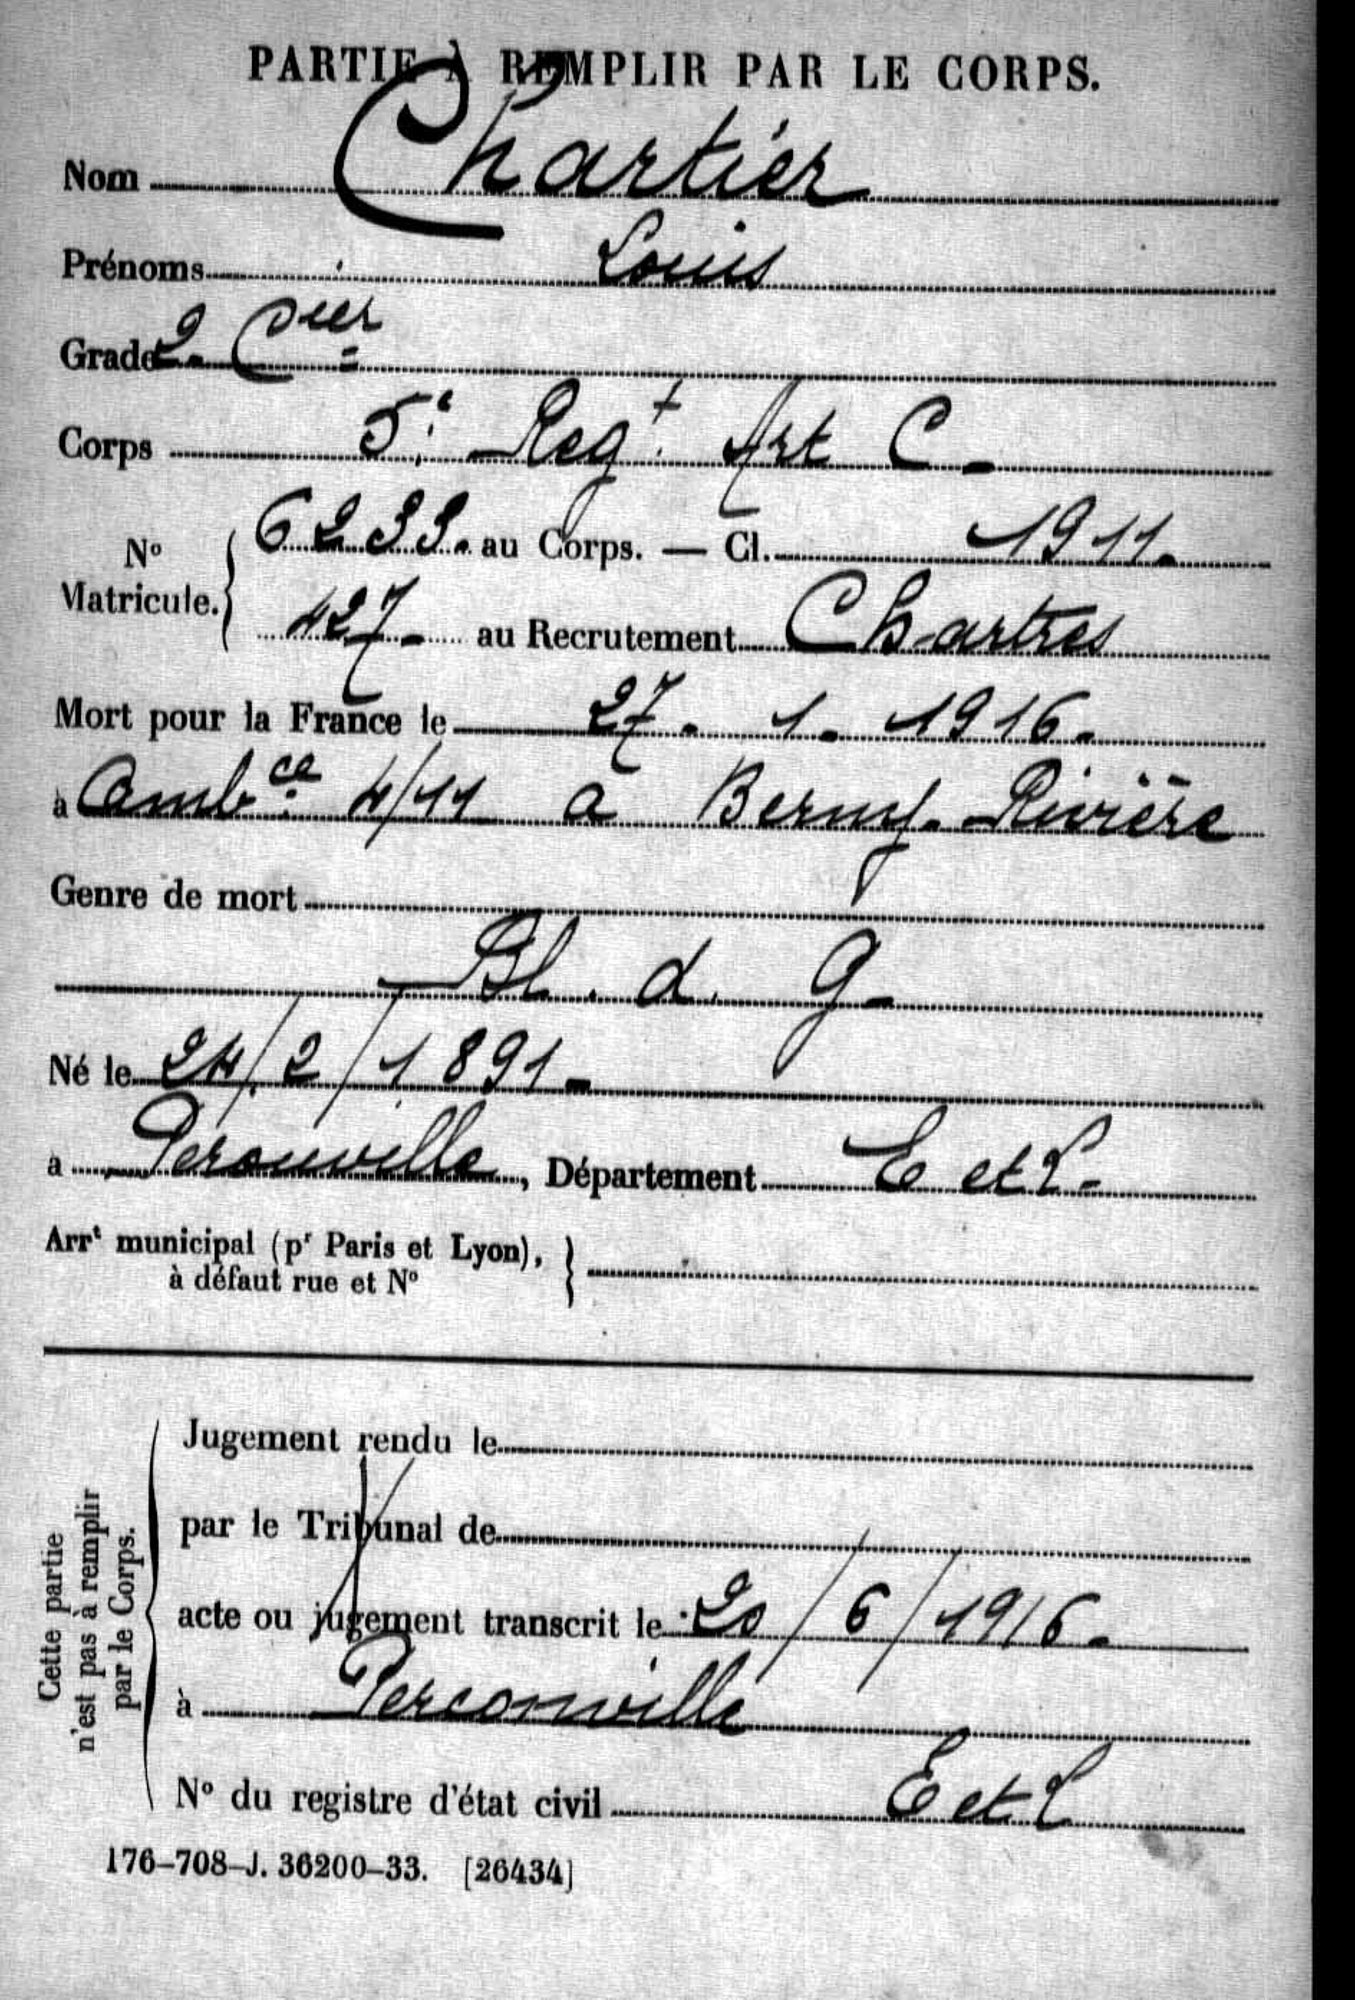 PARTIE À REMPLIR PAR LE CORPS.
Nom Chartier
Prénoms Louis
Grade 2. Cier
Corps 5e Regt Art C -
No Matricule. 6233. au Corps. — Cl. 1911.
427 - au Recrutement Chartres
Mort pour la France le 27 - 1 - 1916 -
à Ambce 4/11 à Berny-Rivière
Genre de mort
Bl. d. g -
Né le 24/2/1891 -
à Peronville, Département E et L -
Arrt municipal (pr Paris et Lyon),
à défaut rue et No
Cette partie
n'est pas à remplir
par le Corps.
Jugement rendu le
par le Tribunal de
acte ou jugement transcrit le 20/6/1916 -
à Perconville
No du registre d'état civil E et L
176-708-J. 36200-33. [26434]